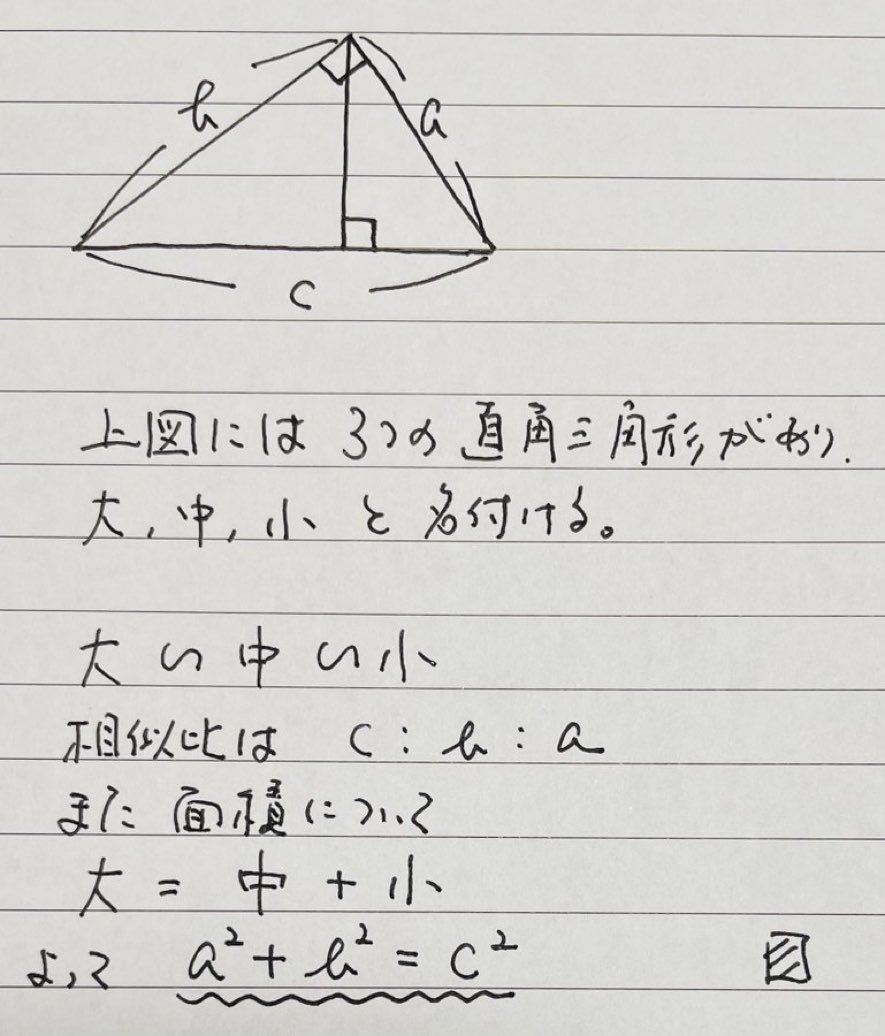 b
a
c
上図には3つの直角三角形があり.
大,中,小と名付ける。
大∽中∽小
相似比は c:b:a
また面積について
大=中+小
よって a²+b²=c²